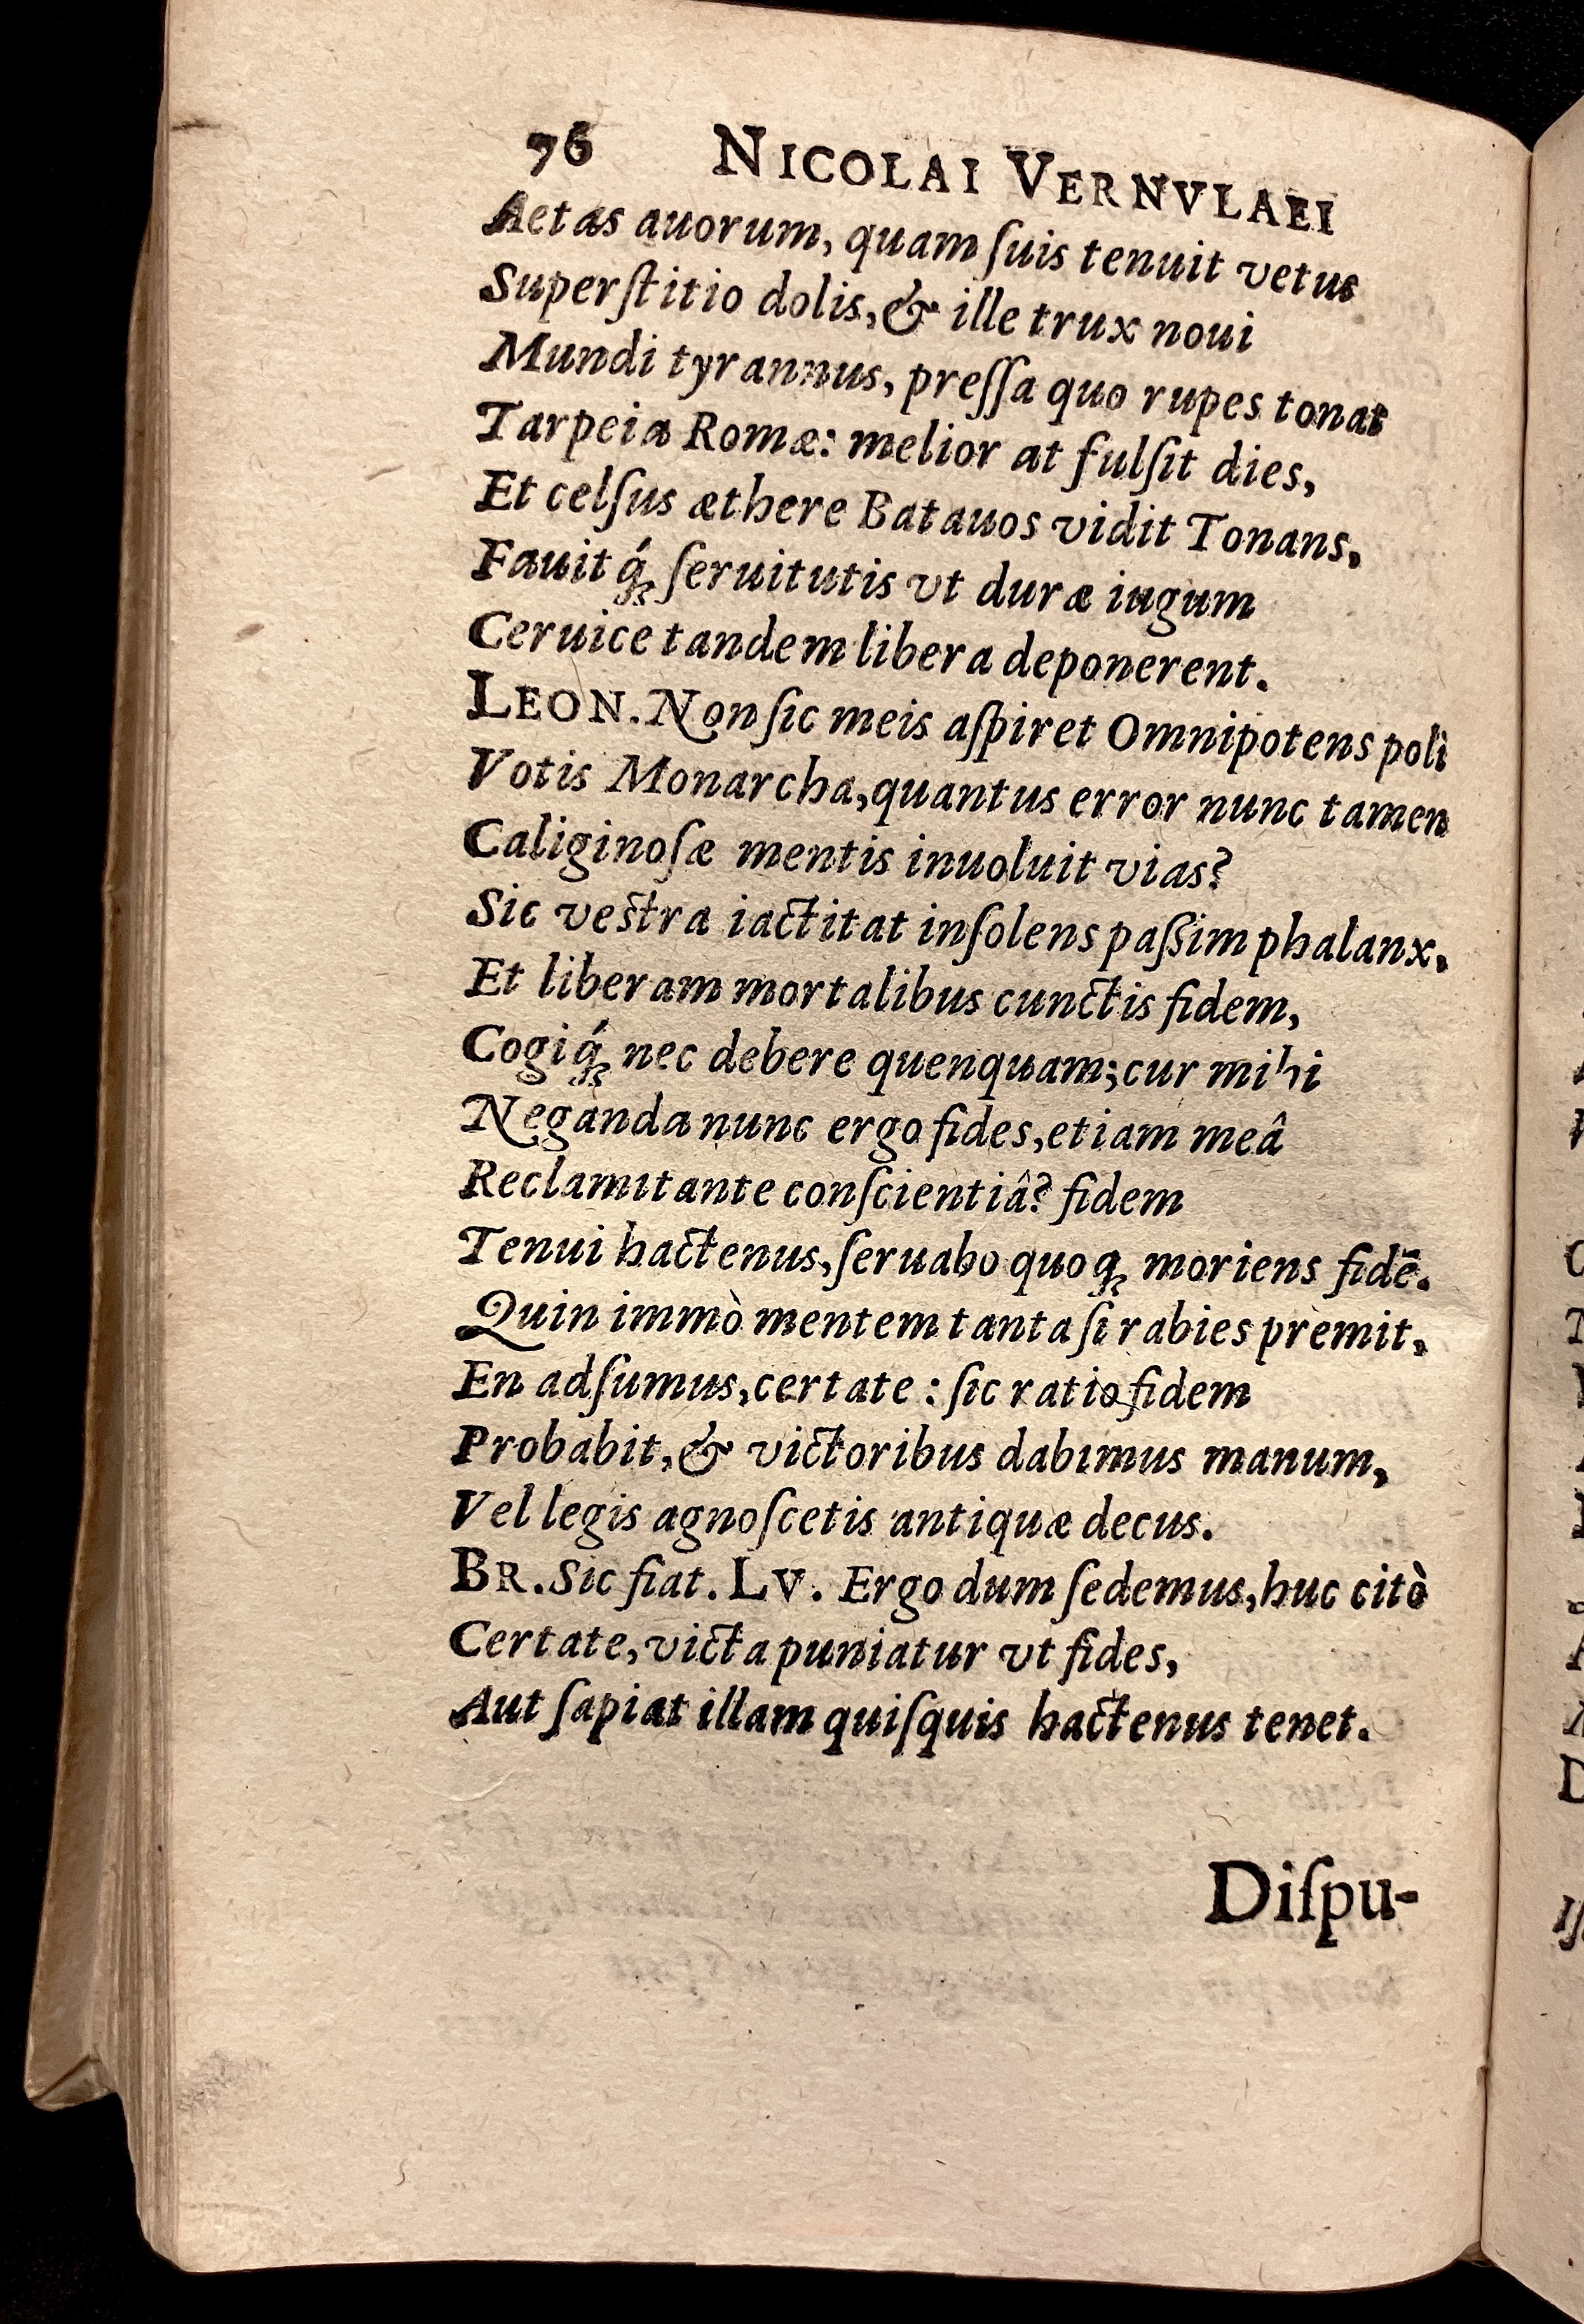 76 NICOLAI VERNVLAEI
Aetas auorum, quam ſuis tenuit vetus
Superſtitio dolis, & ille trux noui
Mundi tyrannus, preſſa quo rupes tonat
Tarpeia Romæ: melior at fulſit dies,
Et celſus æthere Batauos vidit Tonans,
Fauitq́ꝫ ſeruitutis vt duræ iugum
Ceruice tandem libera deponerent.
LEON. Non ſic meis aſpiret Omnipotens poli
Votis Monarcha, quantus error nunc tamen
Caliginoſæ mentis inuoluit vias?
Sic veſtra iactitat inſolens paſsim phalanx,
Et liberam mortalibus cunctis fidem,
Cogiq́ꝫ nec debere quenquam; cur mihi
Neganda nunc ergo fides, etiam meâ
Reclamitante conſcientiâ? fidem
Tenui hactenus, ſeruabo quoqꝫ moriens fidē.
Quin immò mentem tanta ſi rabies premit,
En adſumus, certate: ſic ratio fidem
Probabit, & victoribus dabimus manum,
Vel legis agnoſcetis antiquæ decus.
BR. Sic fiat. LV. Ergo dum ſedemus, huc citò
Certate, victa puniatur vt fides,
Aut ſapiat illam quiſquis hactenus tenet.
Diſpu-